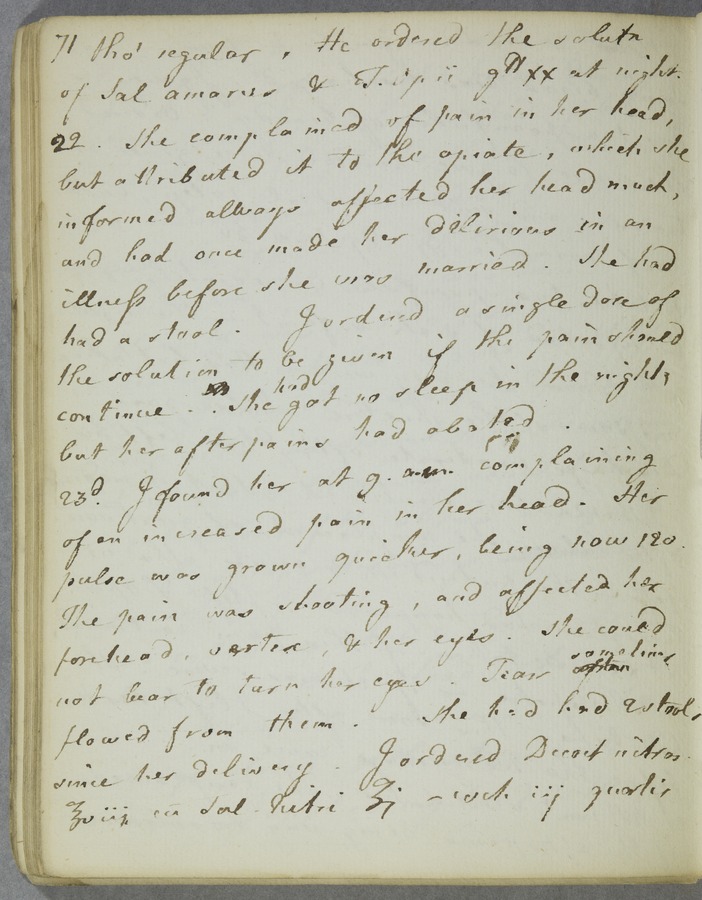 71 tho' regular. He ordered the solutn
of Sal amarus & T. Opii gtt xx at night.
22. She complained of pain in her head,
but attributed it to the opiate, which she
informed always affected her head much,
and had once made her delirious in an
illness before she was married. She had
had a stool. I ordered a single dose of
the solution to be given if the pain should
continue. She had got no sleep in the night,
but her afterpains had abated.
23d. I found her at 9. a.m. complaining
of an increased pain in her head. Her
pulse was grown quicker, being now 120.
The pain was shooting, and affected her
forehead, vertex, & her eyes. She could
not bear to turn her eyes. Tears sometimes
flowed from them. She had had 2 stools
since her delivery. I ordered Decoct nitros.
℥viij Sal Nitri ʒj coch iij quartis